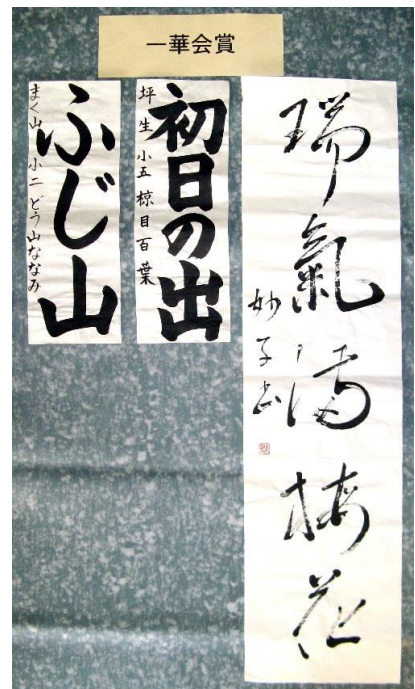 一華会賞
瑞氣満梅花
妙子書
初日の出
坪生 小五 椋目百葉
ふじ山
まく山 小二 どう山ななみ